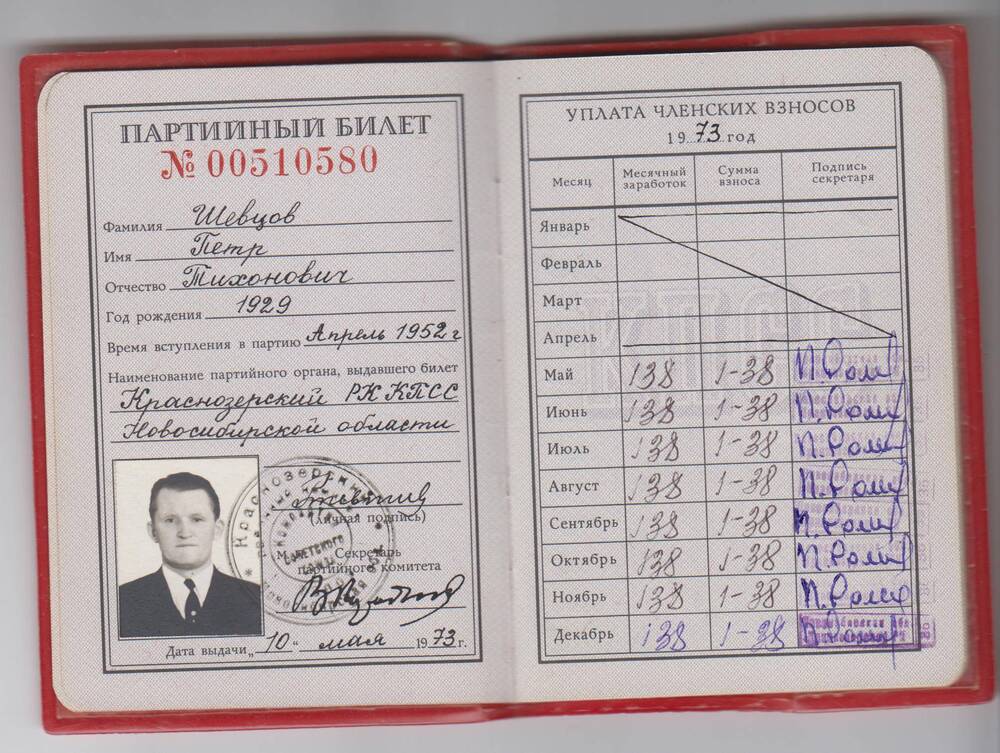 ПАРТИЙНЫЙ БИЛЕТ
№ 00510580
Фамилия Шевцов
Имя Петр
Отчество Тихонович
Год рождения 1929
Время вступления в партию Апрель 1952 г
Наименование партийного органа, выдавшего билет
Краснозерский РК КПСС
Новосибирской области
(личная подпись)
М. Секретарь
партийного комитета
Дата выдачи „10" мая 1973 г.
УПЛАТА ЧЛЕНСКИХ ВЗНОСОВ
1973 год
Месяц Месячный заработок Сумма взноса Подпись секретаря
Январь
Февраль
Март
Апрель
Май 138 1-38
Июнь 138 1-38
Июль 138 1-38
Август 138 1-38
Сентябрь 138 1-38
Октябрь 138 1-38
Ноябрь 138 1-38
Декабрь 138 1-38